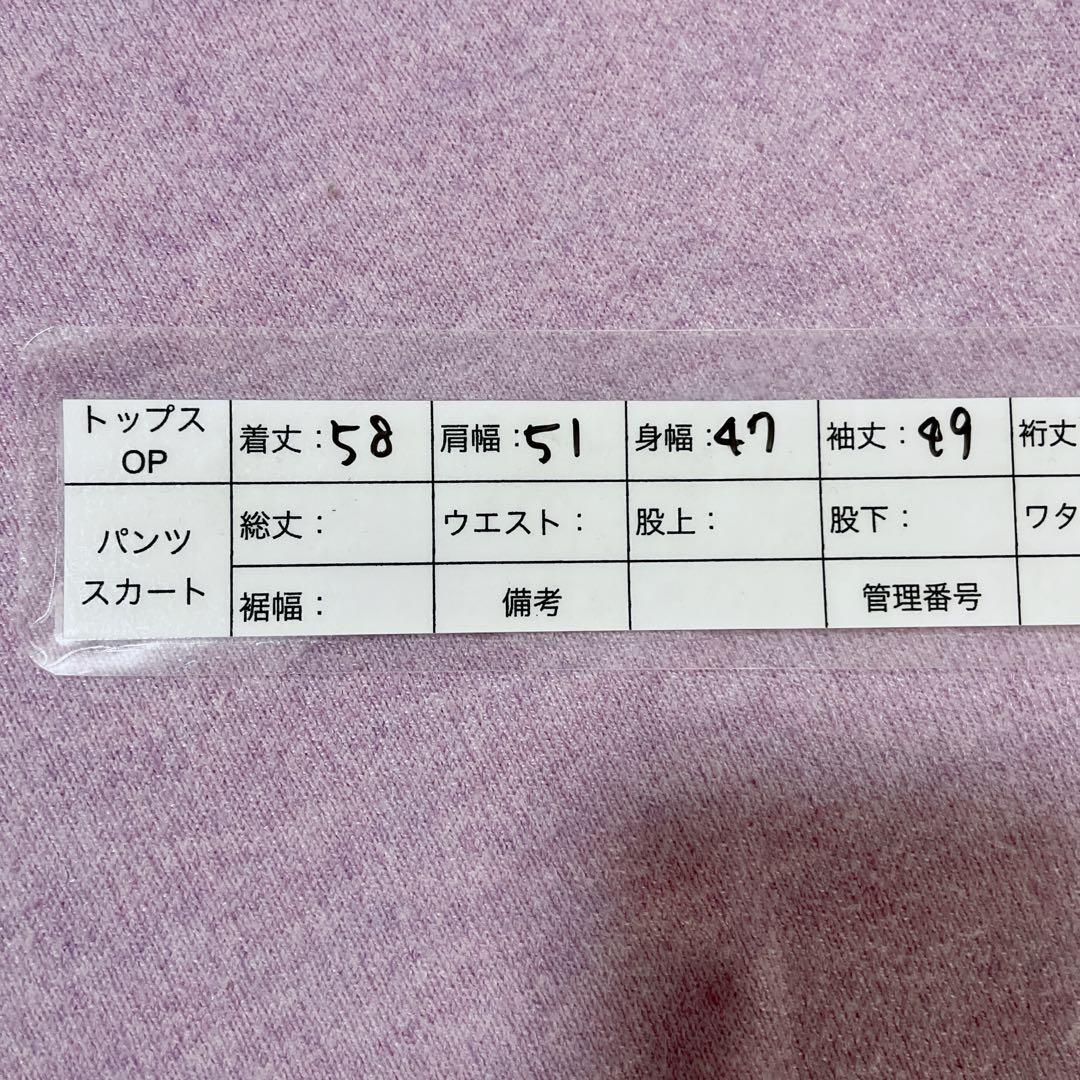 トップス OP 着丈：58 肩幅：51 身幅：47 袖丈：49 裄丈
パンツ スカート 総丈： ウエスト： 股上： 股下： ワタ
裾幅： 備考 管理番号